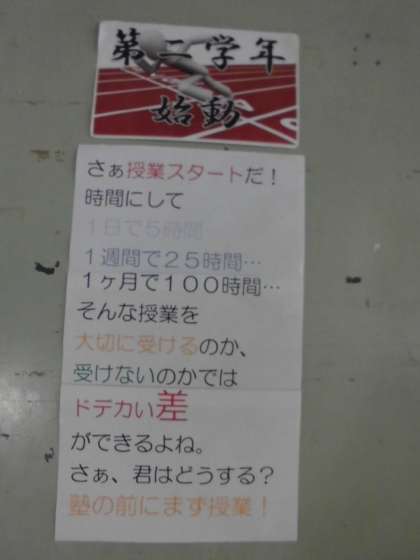 第二学年
始動
さぁ授業スタートだ！
時間にして
１日で５時間
１週間で２５時間…
１ヶ月で１００時間…
そんな授業を
大切に受けるのか、
受けないのかでは
ドデカい差
ができるよね。
さぁ、君はどうする？
塾の前にまず授業！